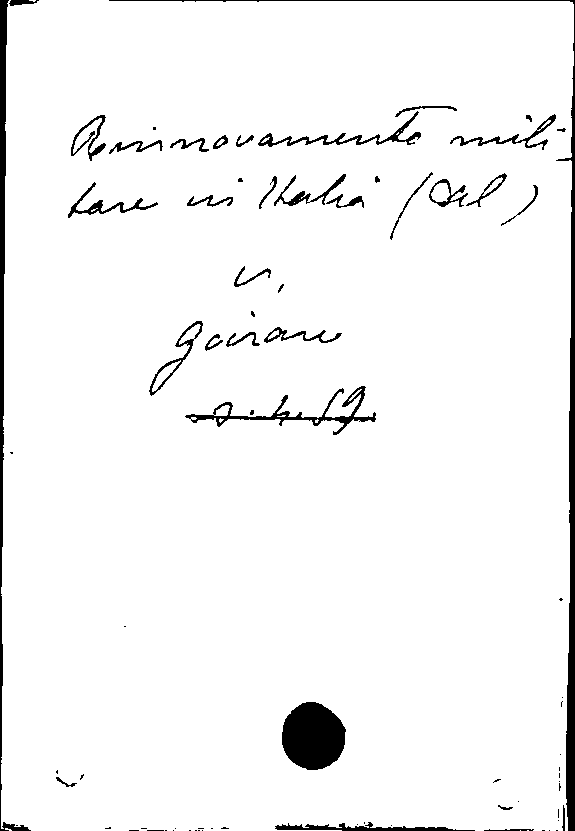 Rinnovamento mili-
tare in Italia (Del)
v.
Goiran